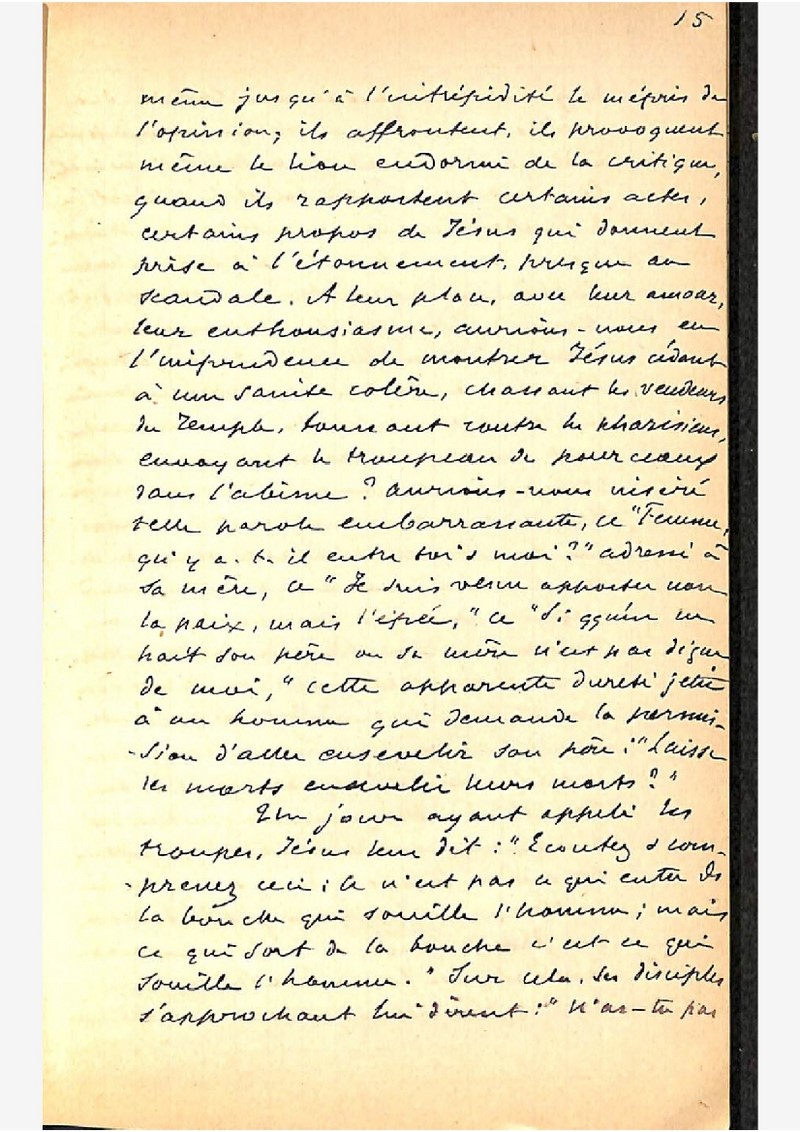 15
même jusqu'à l'intrépidité le mépris de
l'opinion; ils affrontent, ils provoquent
même le lion endormi de la critique,
quand ils rapportent certains actes,
certains propos de Jésus qui donnent
prise à l'étonnement, presque au
scandale. A leur place, avec leur amour,
leur enthousiasme, aurions-nous eu
l'imprudence de montrer Jésus cédant
à une sainte colère, chassant les vendeurs
du Temple, tonnant contre les pharisiens,
envoyant le troupeau de pourceaux
dans l'abîme? aurions-nous inséré
telle parole embarrassante, ce "Femme,
qu'y a-t-il entre toi & moi?" adressé à
sa mère, ce "Je suis venu apporter non
la paix, mais l'épée," ce "Si qquún ne
hait son père ou sa mère n'est pas digne
de moi," cette apparente dureté jetée
à un homme qui demande la permis-
-sion d'aller ensevelir son père: "Laisse
les morts ensevelir leurs morts?"
Un jour ayant appelé les
troupes, Jésus leur dit: "Ecoutez & com-
-prenez ceci: ce n'est pas ce qui entre ds
la bouche qui souille l'homme; mais
ce qui sort de la bouche c'est ce qui
souille l'homme." Sur cela, ses disciples
s'approchant lui dirent: "N'as-tu pas